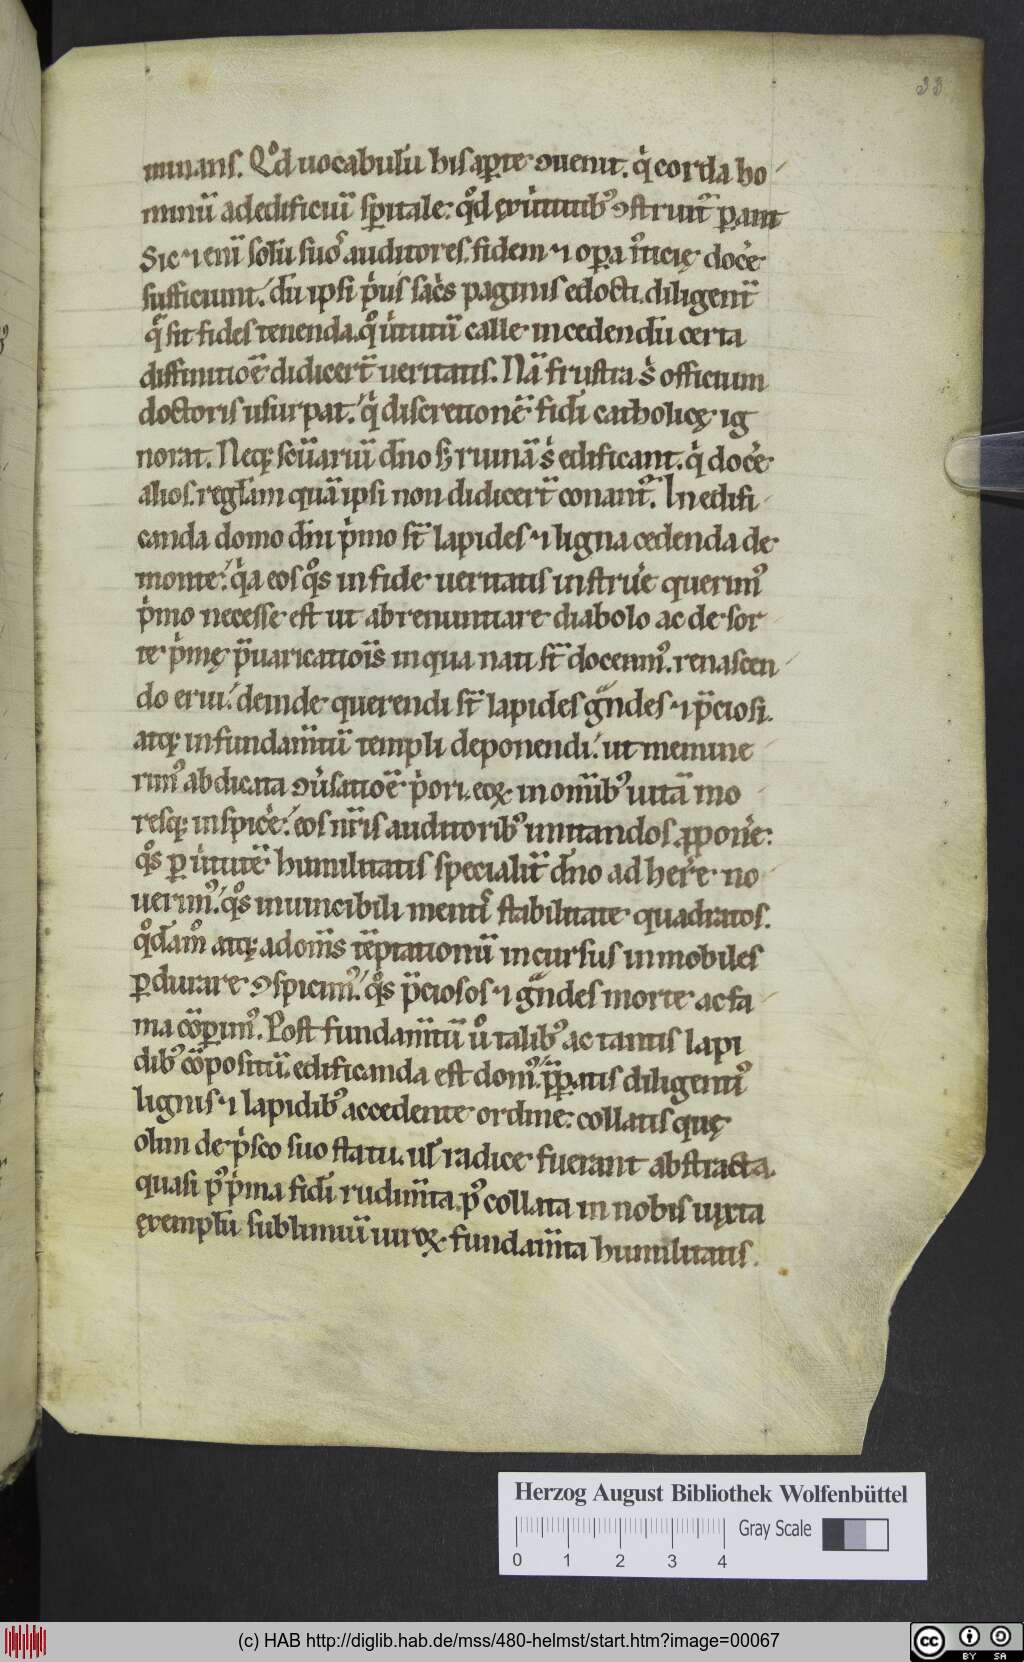 33
minans. Qd̊ uocabulū his aꝑte ꝯuenit. q̍ corda ho
minū ad edificiū sp̄itale: qd̊ ex uirtutib᷒ ꝯstruit᷑ parant
Sic ⁊ enī solū suoꝝ auditores. fidem ⁊ opa iusticię docere
sufficiunt. dū ipsi prius sacris paginis edocti. diligent᷑
q̄ sit fides tenenda. quo uirtutū calle incedendū certa
diffinitiōe didicer̄t ueritatis. Nā frustra s̍ officium
doctoris usurpat. q̍ discretionē fidi catholicę ig
norat. Neq; scūariū dn̄o sꝫ ruinā s̍ edificant. q̍ docere
alios. reglam quā ipsi non didicer̄t conant᷑. In edifi
canda domo dn̄i p̍mo st̄ lapides ⁊ ligna cedenda de
monte. q̍a eos qᵒs in fide ueritatis instruere querim᷒
p̍mo necesse est ut abrenuntiare diabolo ac de sor
te p̍mę p̄uaricatiōis in qua nati st̄ doceam᷒. renascen
do erui. deinde querendi st̄ lapides grandes ⁊ p̄ciosi.
atq; in fundam̄tū templi deponendi. ut memine
rim᷒ abdicata ꝯuersatiōe p̍ori. eoꝝ in omīb᷒ uitā mo
resq; inspicere. eos nr̄is auditorib᷒ imitandos ꝓponere:
qᵒs ꝑ uirtutē humilitatis specialit̄ dn̄o adherere no
uerim᷒. qᵒs inuincibili mentis stabilitate quadratos.
qᵒdam᷒ atq; ad om̄s tēptationū incursus inmobiles
ꝑdurare ꝯspicim᷒. qᵒs p̄ciosos ⁊ grandes morte ac fa
ma cōꝑim᷒. Post fundam̄tū uᵒ talib᷒ ac tantis lapi
dib᷒ cōpositū. edificanda est dom᷒. p̄paratis diligenti᷒
lignis ⁊ lapidib᷒ accedente ordine: collatis quę
olim de p̍sco suo statu. ul̄ radice fuerant abstracta.
quasi p᷒ p̍ma fidi rudim̄ta. p᷒ collata in nobis iuxta
exemplū sublimiū uiroꝝ fundam̄ta humilitatis.
Herzog August Bibliothek Wolfenbüttel
0 1 2 3 4
Gray Scale
(c) HAB http://diglib.hab.de/mss/480-helmst/start.htm?image=00067
cc BY SA